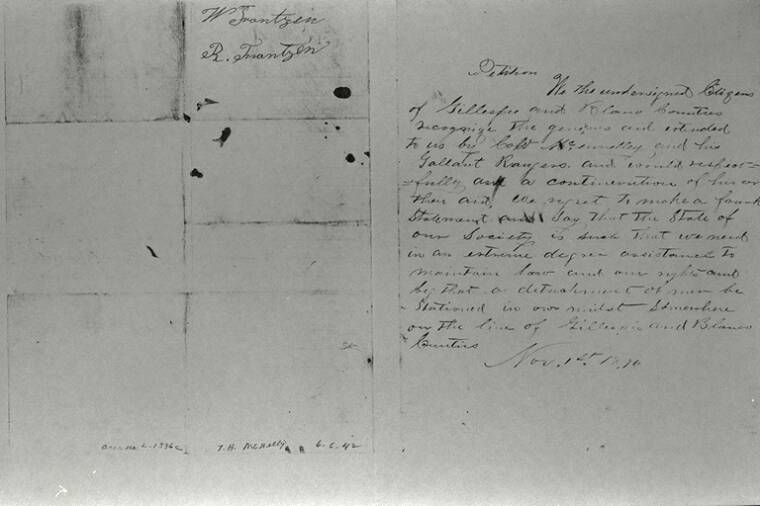 W Frantzen
R. Frantzen
Petition
We the undersigned Citizens
of Gillespie and Blanco Counties
recognize the generous and extended
to us by Capt McNnelley and his
Gallant Rangers and would respect=
=fully ask a continuation of
their aid. We regret to make a
Statement and Say that the State of
our Society is such that we need
in an extreme degree assistance to
maintain law and our rights and
beg that a detachment of men be
Stationed in our midst Somewhere
on the line of Gillespie and Blanco
Counties
Nov. 1st
T. H. McNelly 6-6-42